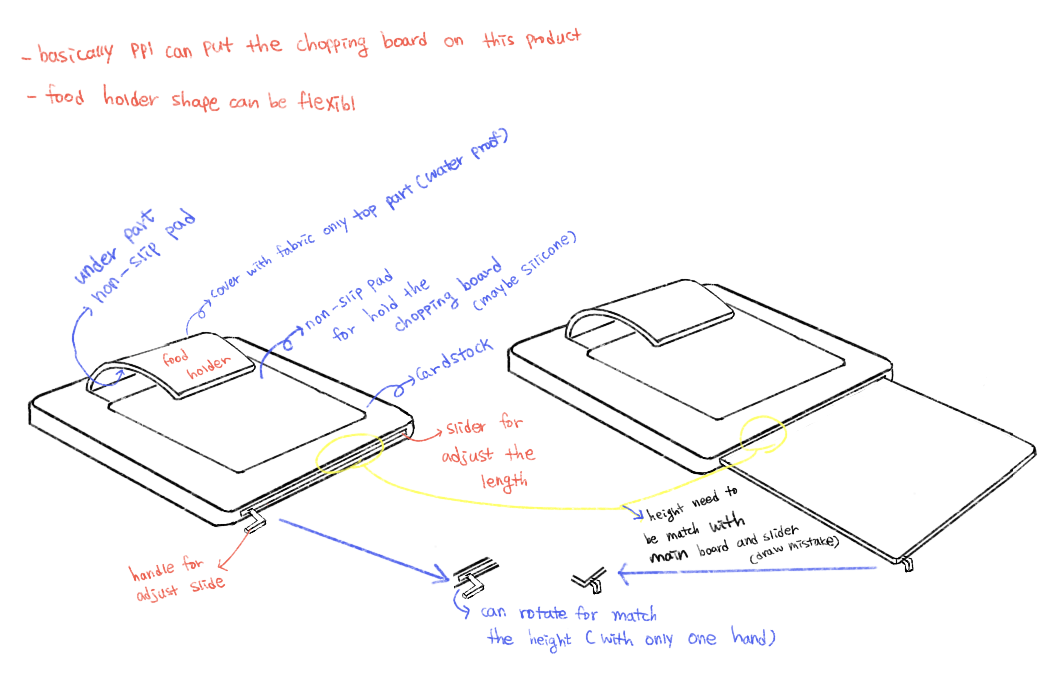 - basically ppl can put the chopping board on this product
- food holder shape can be flexibl
under part
non-slip pad
cover with fabric only top part (water proof)
non-slip pad
for hold the
chopping board
(maybe silicone)
food
holder
cardstock
slider for
adjust the
length
handle for
adjust slide
height need to
be match with
main board and slider
(draw mistake)
can rotate for match
the height (with only one hand)